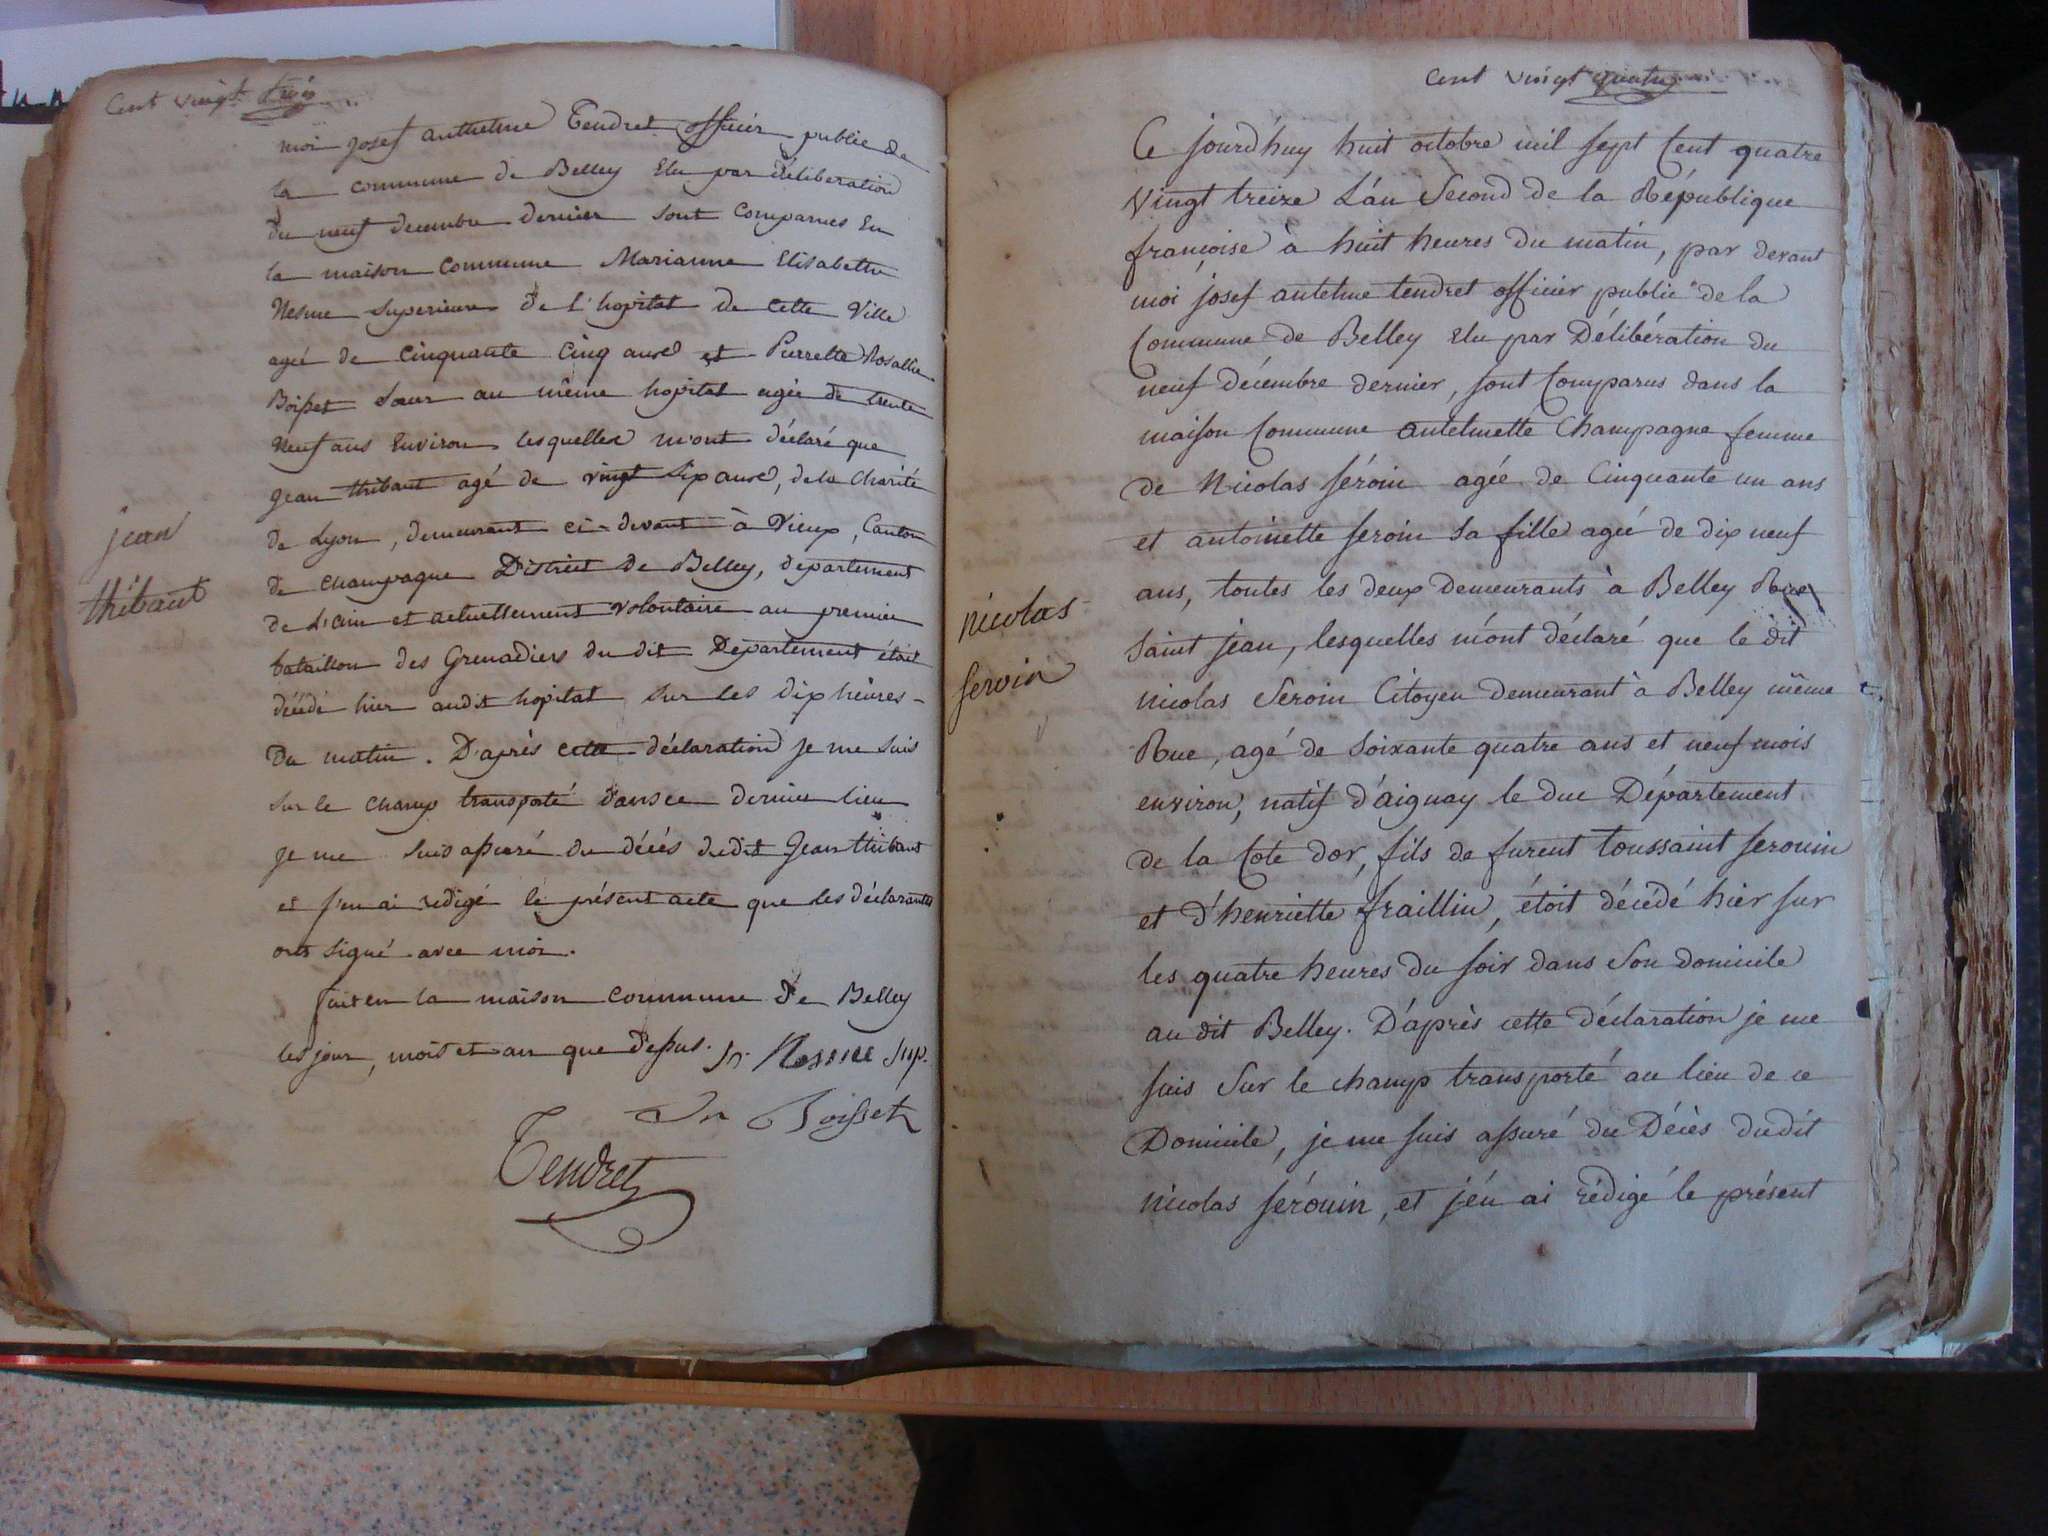 Cent vingt trois
moi josef anthelme Tendret officier public de
la commune de Belley Elu par déliberation
du neuf decembre dernier sont comparues En
la maison commune Marianne Elisabethe
Nesme Superieure de l'hopital de cette Ville
agée de cinquante cinq ans et Pierrette Rosalie
Boisset Sœur au même hopital agée de trente
Neuf ans Environ lesquelles m'ont déclaré que
jean thibaut agé de vingt six ans, de la charité
de Lyon, demeurant ci-devant à Vieux, Canton
de champagne District de Belley, departement
de L'ain et actuellement volontaire au premier
bataillon des Grenadiers du dit Département étoit
décédé hier audit hopital sur les dix heures
du matin. D'après cette déclaration je me suis
sur le champ transporté dans ce dernier lieu
je me suis assuré du décès dudit Jean thibaut
et j'en ai redigé le présent acte que les déclarantes
ont signé avec moi.
fait en la maison commune de Belley
les jour, mois et an que dessus. Sr. Nesme Sup.
Sr Boisset
Tendret
jean
thibaut
Cent vingt quatre
Ce jourd'huy huit octobre mil sept Cent quatre
Vingt treize L'an Second de la République
françoise à huit heures du matin, par devant
moi josef antelme tendret officier public de la
Commune de Belley Elu par Délibération du
neuf décembre dernier, sont Comparus dans la
maison Commune antelmette Champagne femme
de Nicolas Séroin agée de Cinquante un ans
et antoinette seroin sa fille agée de dix neuf
ans, toutes les deux demeurants à Belley Rue
saint jean, lesquelles m'ont déclaré que le dit
nicolas Seroin Citoyen demeurant à Belley même
Rue, agé de soixante quatre ans et neuf mois
environ, natif d'aignay le duc Département
de la Cote d'or, fils de furent toussaint serouin
et d'henriette fraillin, étoit décédé hier sur
les quatre heures du soir dans Son domicile
au dit Belley. D'après cette déclaration je me
suis Sur le champ transporté au lieu de ce
Domicile, je me suis assuré du Décès dudit
nicolas sérouin, et j'en ai rédigé le présent
nicolas
servin